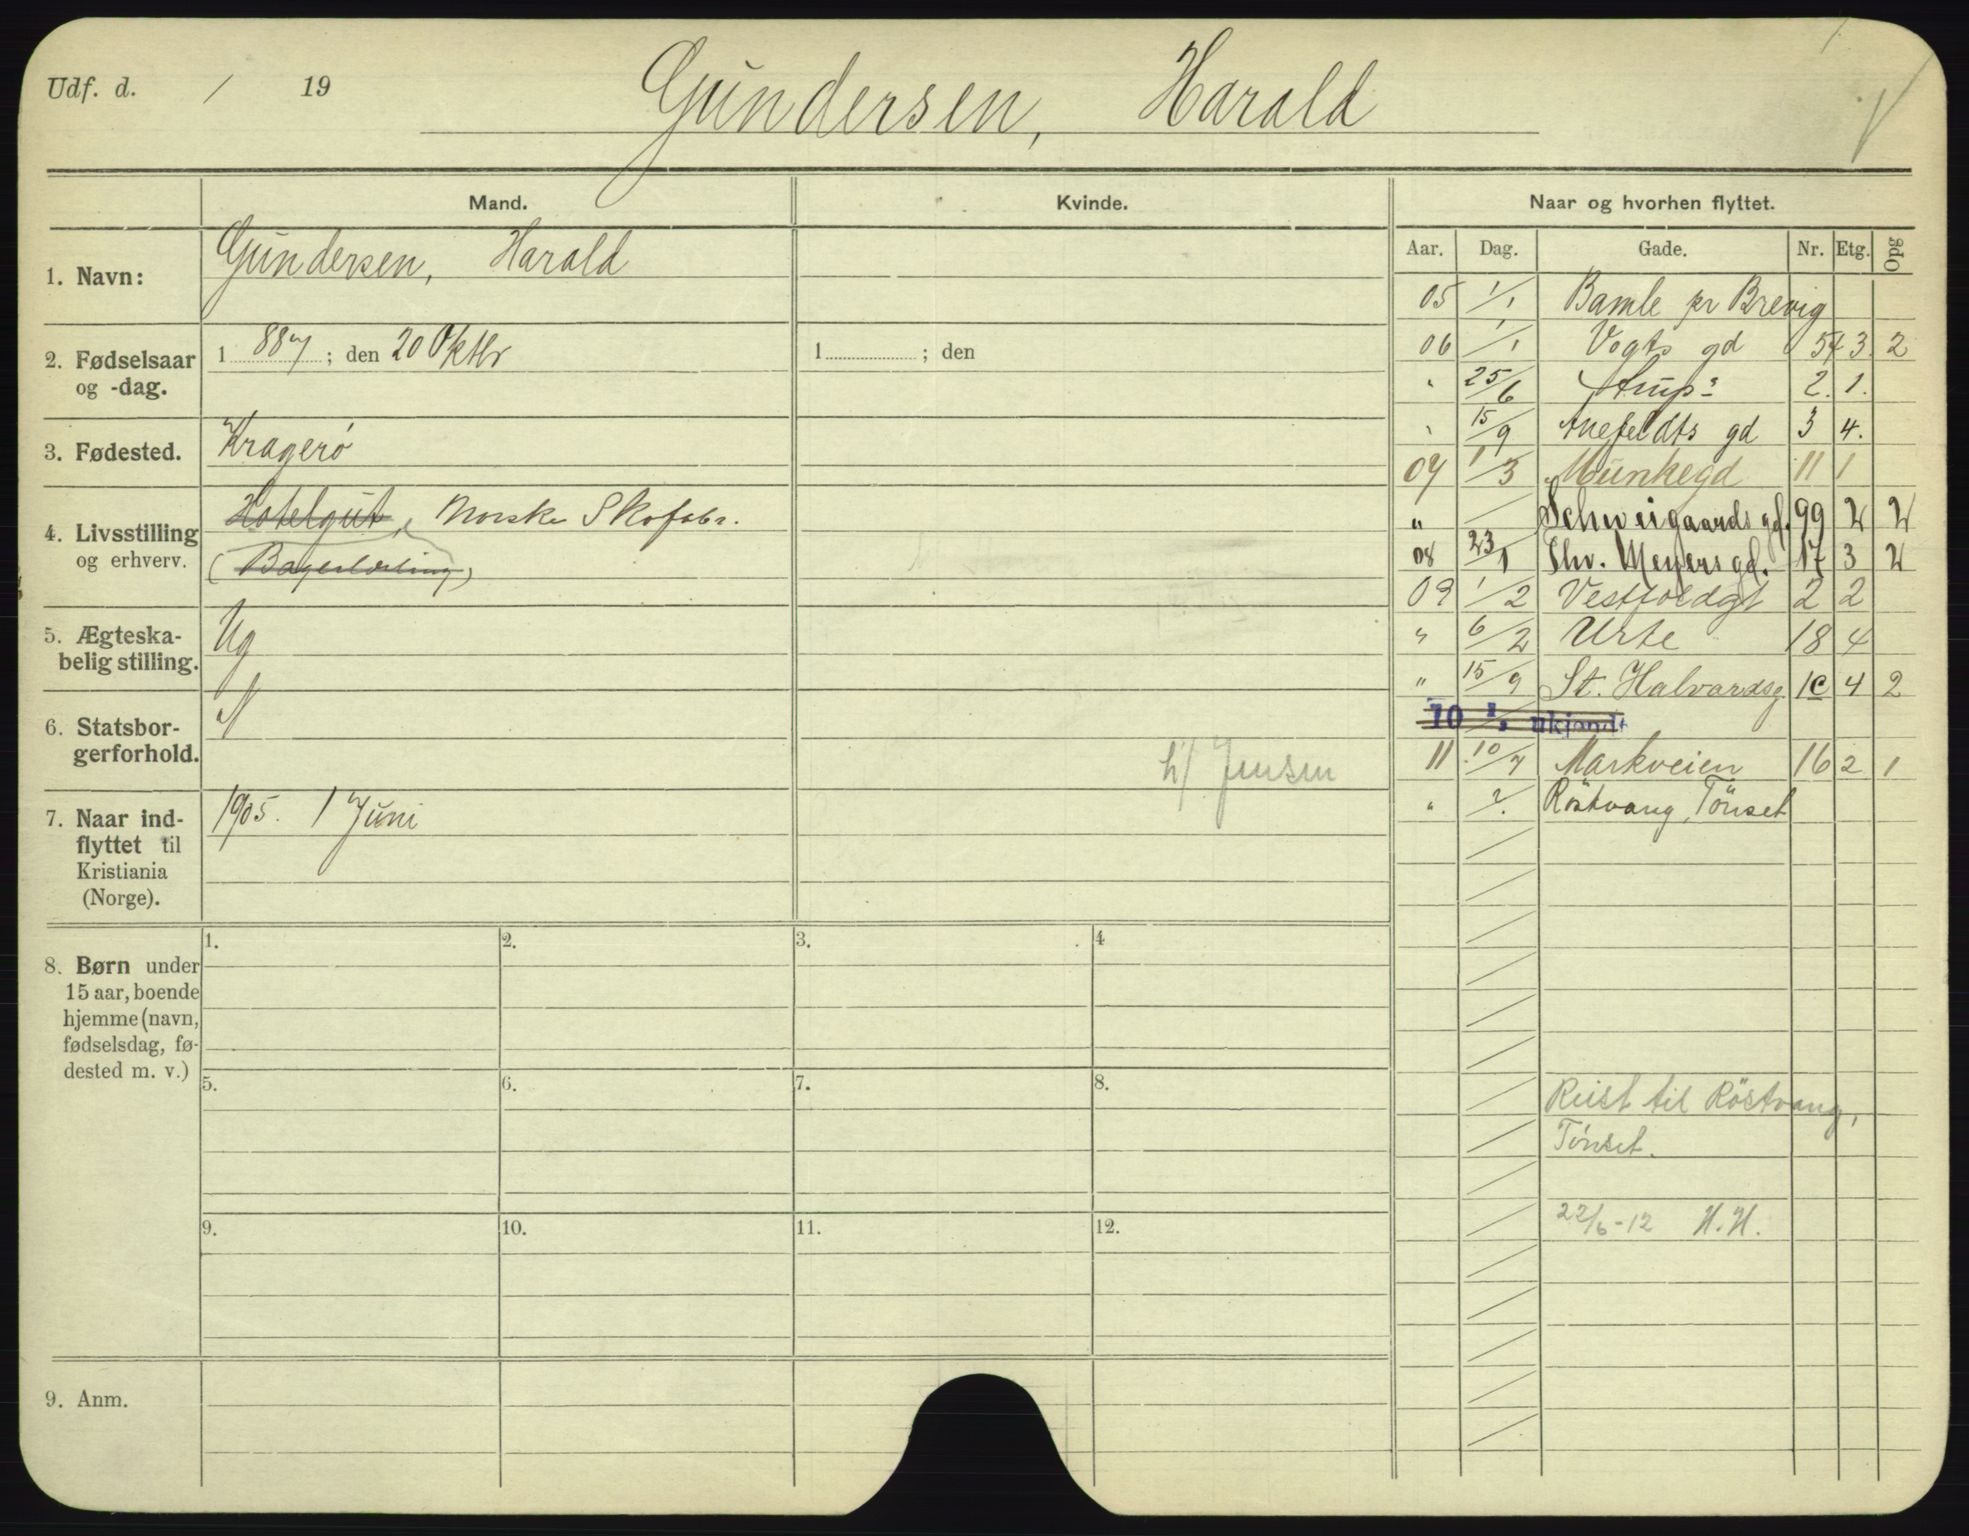 Udf. d. / 19
Gundersen, Harald
Mand.
Kvinde.
Naar og hvorhen flyttet.
Aar. Dag. Gade. Nr. Etg. Opg
1. Navn: Gundersen, Harald
2. Fødselsaar og -dag. 1 887 ; den 20 Oktbr
1 ; den
3. Fødested. Kragerö
4. Livsstilling og erhverv. Hotelgut, Norske Skofabr.
(Bagerlærling)
5. Ægteska-
belig stilling. Ug
6. Statsbor-
gerforhold. N
h/ Jensen
7. Naar ind-
flyttet til
Kristiania
(Norge). 1905. 1 Juni
05 1/1 Bamle pr Brevig
06 1/1 Vogts gd 54 3 2
" 25/6 2. 1.
" 15/9 Anefeldts gd 3 4.
07 1/3 Munkegd 11 1
" / Schweigaards gd. 99 2 2
08 23/1 Chr. Meyers gd. 17 3 2
09 1/2 Vestfoldgt 2 2
" 6/2 Urte 18 4
" 15/9 St. Halvardsg 1c 4 2
10 1/1 ukjendt
11 10/7 Markveien 16 2 1
" ?. Röstvang, Tönset
8. Børn under
15 aar, boende
hjemme (navn,
fødselsdag, fø-
dested m. v.)
1. 2. 3. 4
5. 6. 7. 8.
9. 10. 11. 12.
Reist til Röstvang,
Tönset.
22/6-12 H.H.
9. Anm.